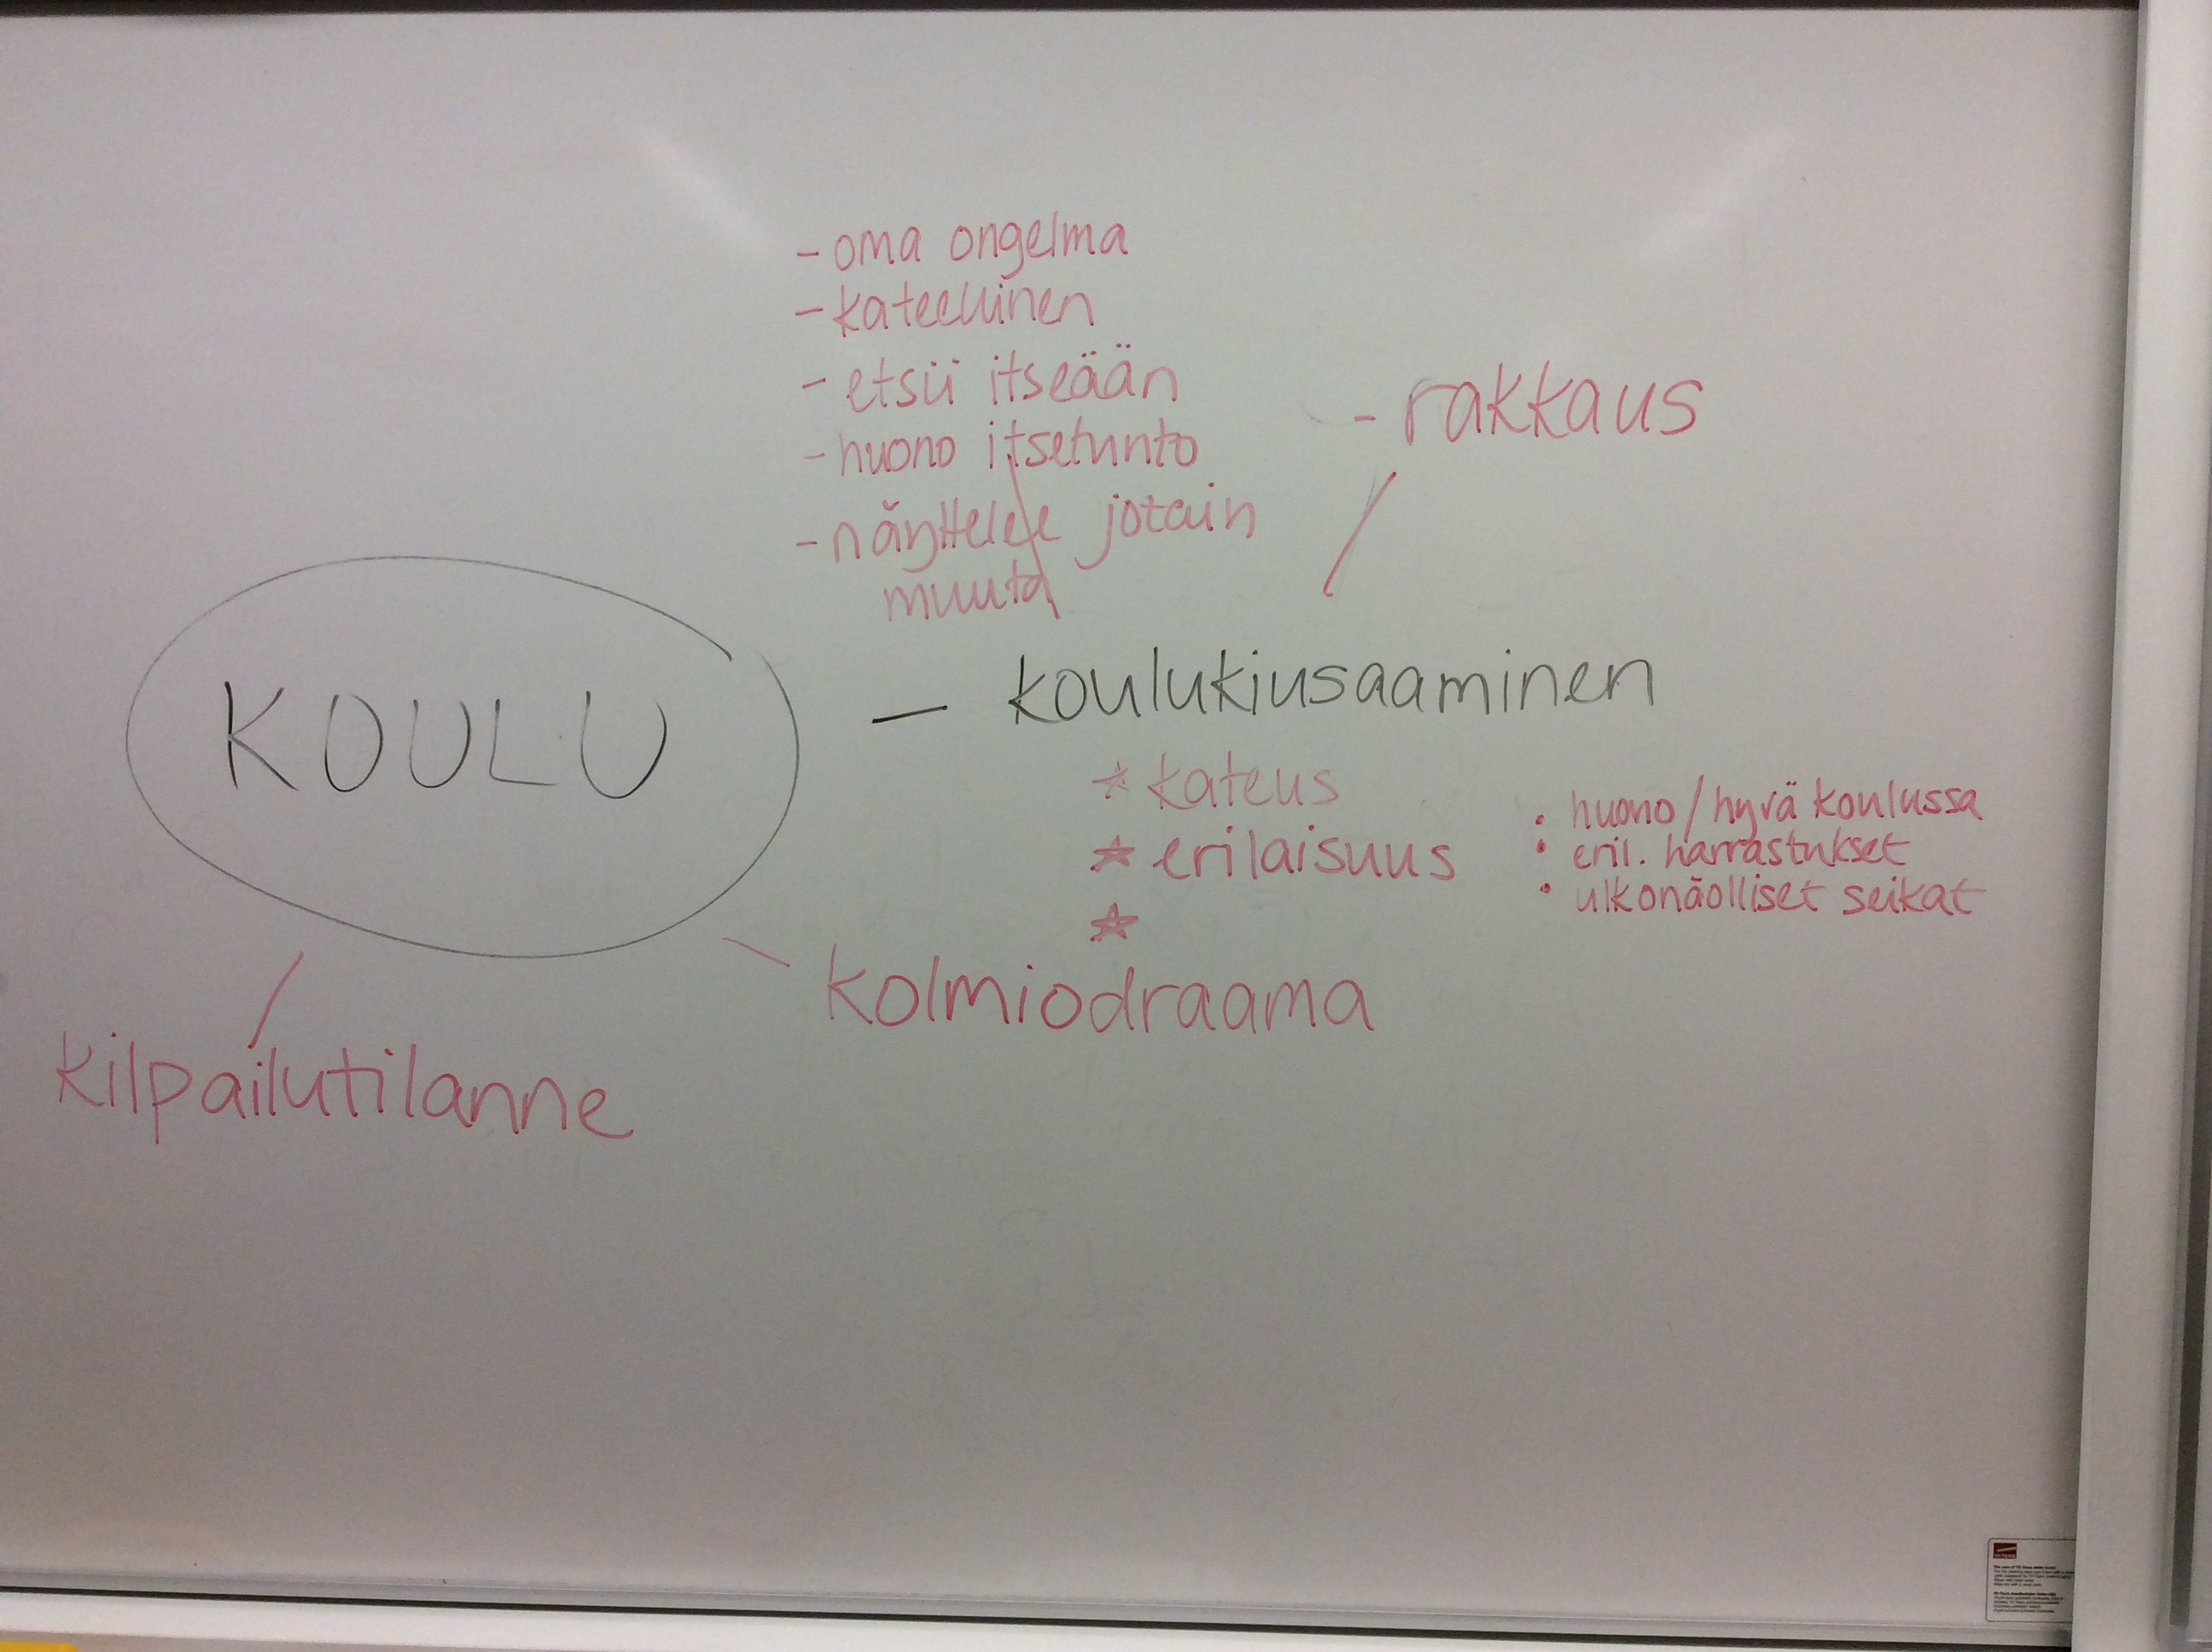 - oma ongelma
- kateellinen
- etsii itseään
- huono itsetunto
- näyttelee jotain
muuta
- rakkaus
KOULU
— koulukiusaaminen
* kateus
* erilaisuus
*
• huono/hyvä koulussa
• eril. harrastukset
• ulkonäölliset seikat
kolmiodraama
kilpailutilanne